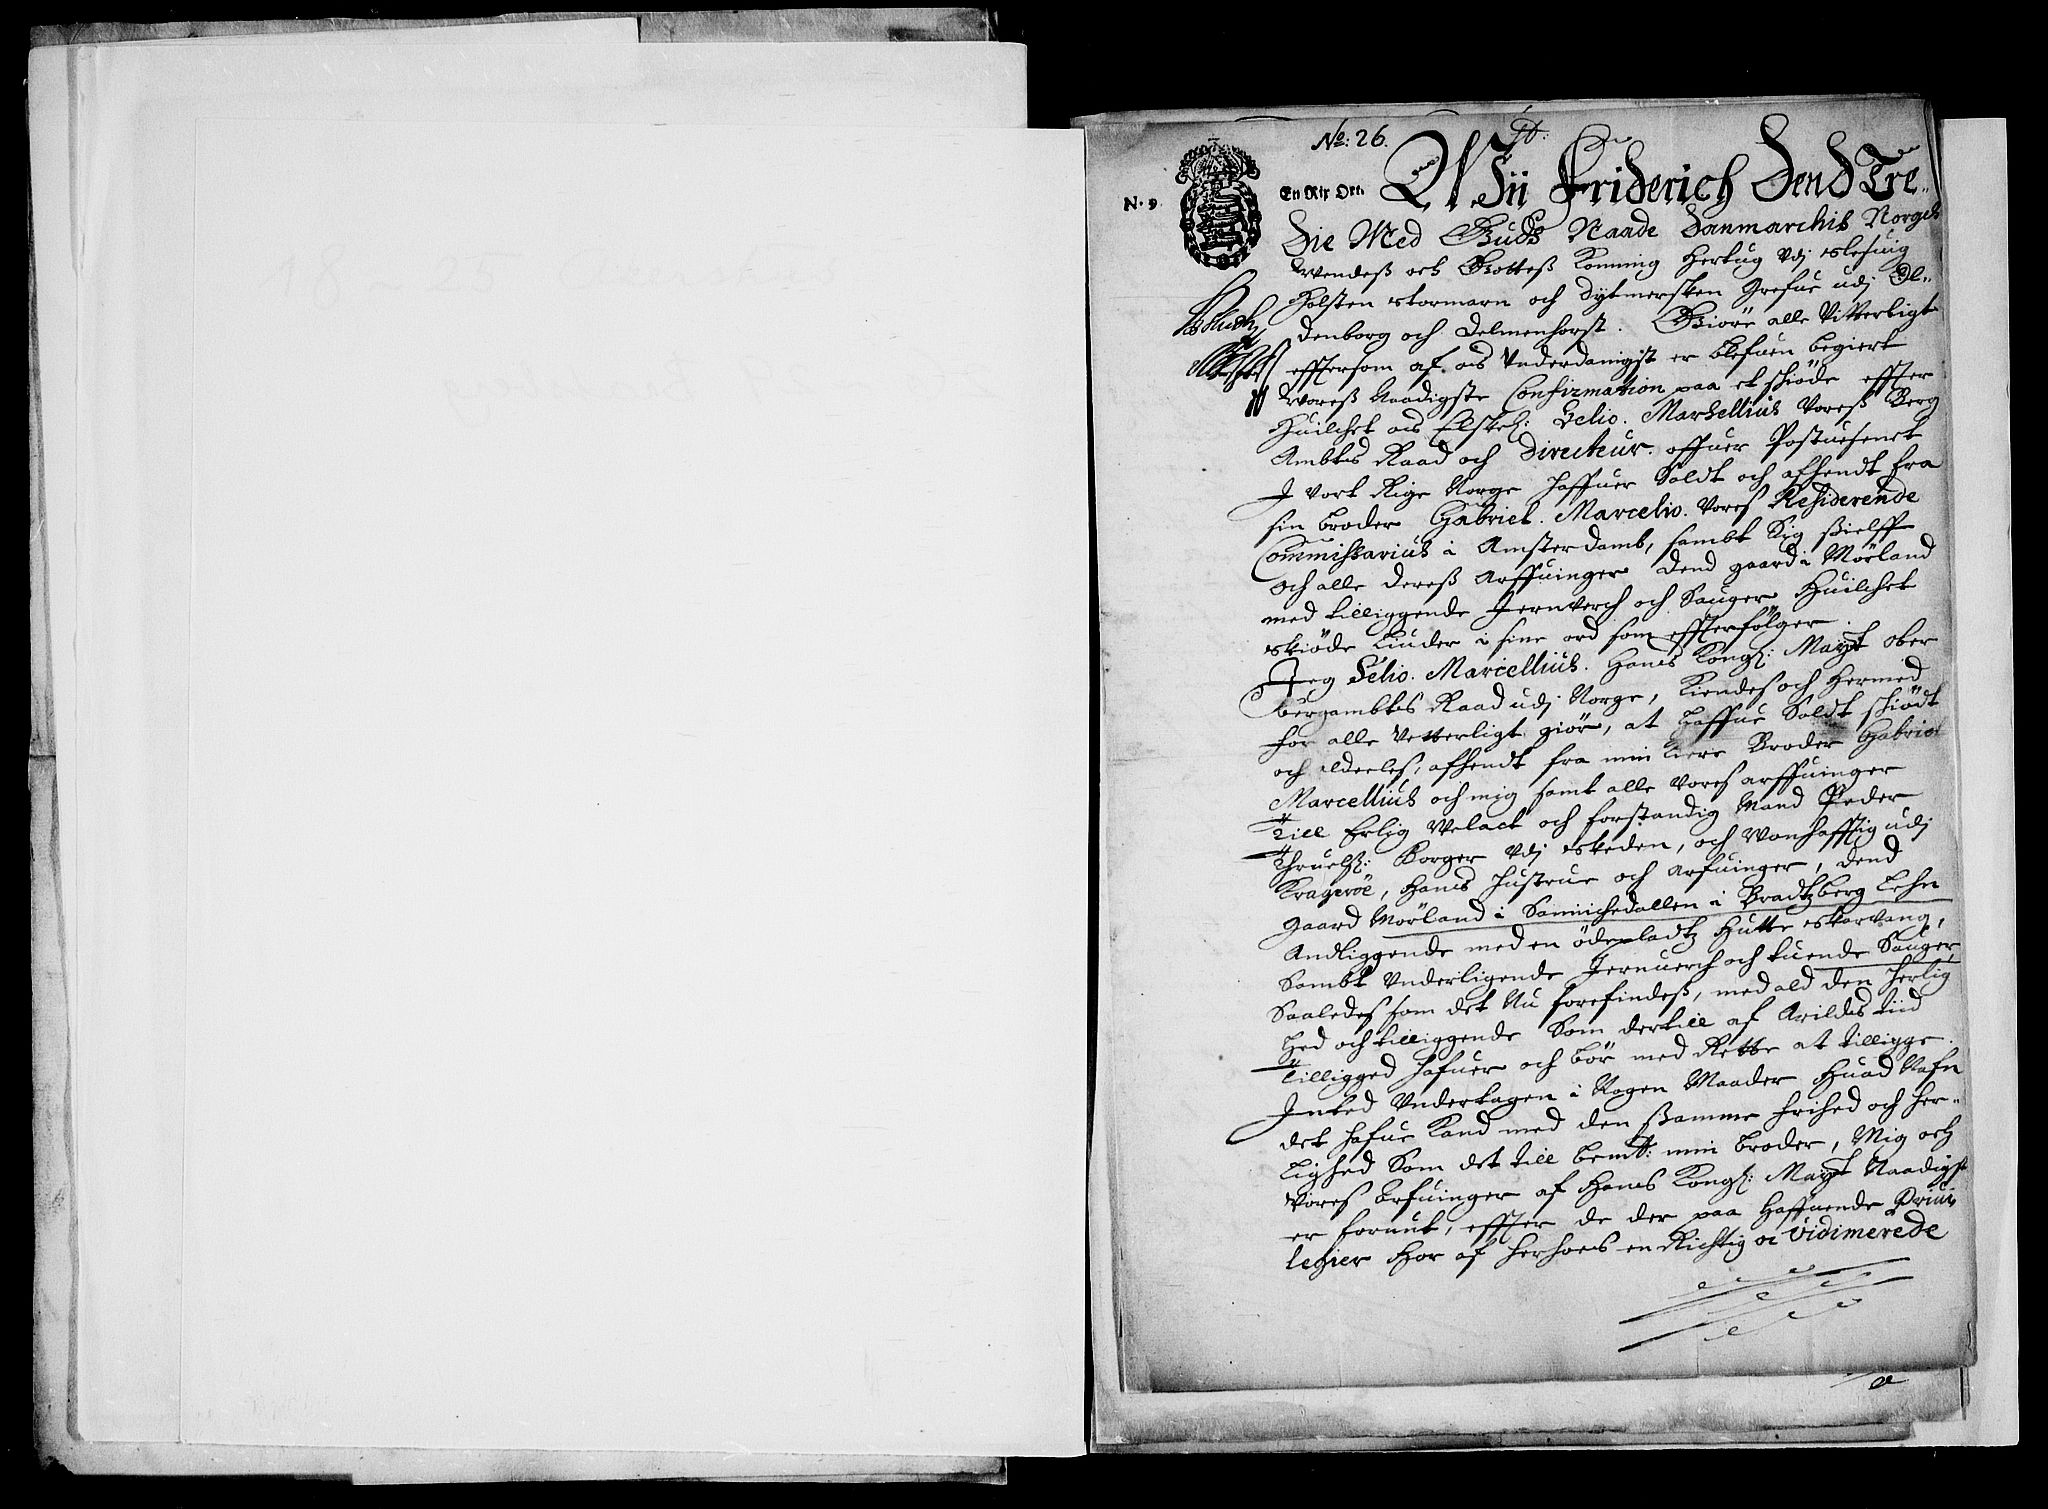 No: 26.
N. 9.
En Rix Ort.
Wii Friderich Dend Tre„
die Med Guds Naade Danmarchis Norges
Wendeß och Gotteß Konning Hertug vdj Slesuig
Holsten Stormarn och Dytmersken Grefue udj Ol„
denborg och Delmenhorst. Giöre alle Vitterligt
effttersom af os Vnderdanigst er blefuen begiert
Woreß Naadigste Confirmation paa et schiöde effter
Huilchet os Elskel: Selio. Marsellius Voreß Berg
Ambtes Raad och Directeur. offuer Postuesenet
J Vort Rige Norge haffuer Soldt och afhendt fra
sin broder Gabriel. Marcelio. Vores Residerende
Commissarius i Amsterdamb, sambt Sig Sielff
och alle dereß Arffuinger dend gaard i Mörland
med tilliggende Jernverch och Sauger Huilchet
skiöde Liuder i sine ord som effterfölger.
Jeg Selio. Marcellius. Hans Kongl: Mayt ober
bergambtes Raad udj Norge, Kiendes och hermed
for alle Vetterligt giör, at haffue Soldt schiödt
och aldeeles, afhendt fra min kiere Broder Gabriel
Marcellius och mig samt alle Vores arffuinger
till Erlig Welact och forstandig Mand Peder
Thruelß: Borger vdj Skeden, och Wonhafftig udj
Krageröe, Hans Hustrue och arfuinger, dend
gaard Mörland i Sannichedallen i Bradtzberg Lehn
Andliggende med en ödepladtz Hutte Skarvang,
Sambt Vnderligende Jernuerch och tuende Sauger,
Saaledes som det Nu forefindeß, med ald den Herlig
hed och tilliggende Som dertill af Arildes tiid
tilligged hafuer och bör med Rette at tilligge.
Jnted Vndertagen i Nogen Maader Huad Nafn
det hafue Kand med den Samme frihed och Her„
lighed Som det till bemt: min broder, Mig och
Vores Arfuinger af Hans Kongl: Mayt Naadigst
er forunt, effter de der paa Haffuende Priui
legier Hor af herhoes en Richtig oc Vidimerede